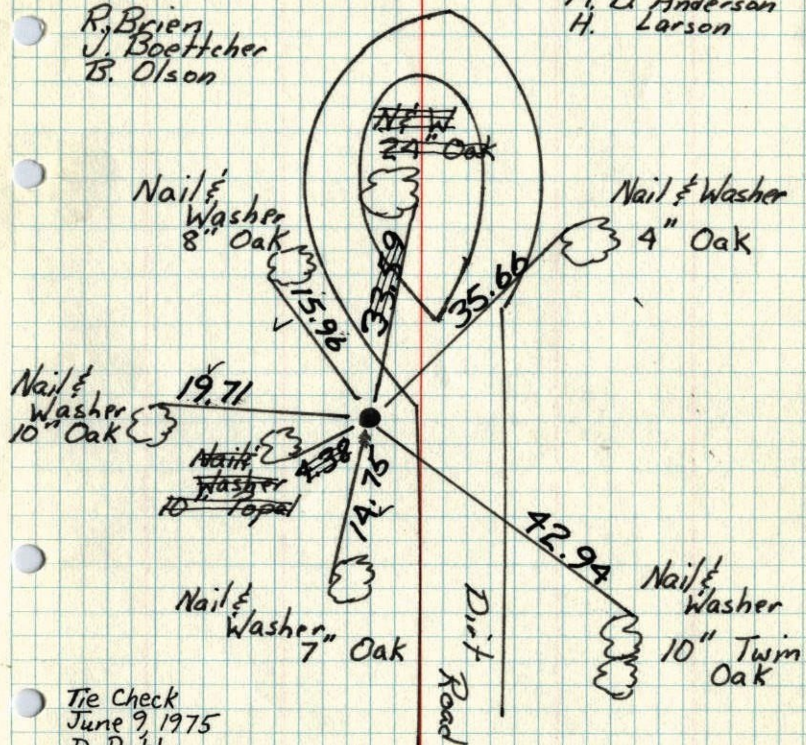 R. Brien
J. Boettcher
B. Olson
Anderson
H. Larson
N & W
24" Oak
Nail &
Washer
8" Oak
Nail & Washer
4" Oak
33.59
35.66
15.96
19.71
Nail &
Washer
10" Oak
Nail &
Washer
10" Popal
4.38
14.75
42.94
Nail &
Washer
7" Oak
Nail &
Washer
10" Twin
Oak
Dirt
Road
Tie Check
June 9, 1975